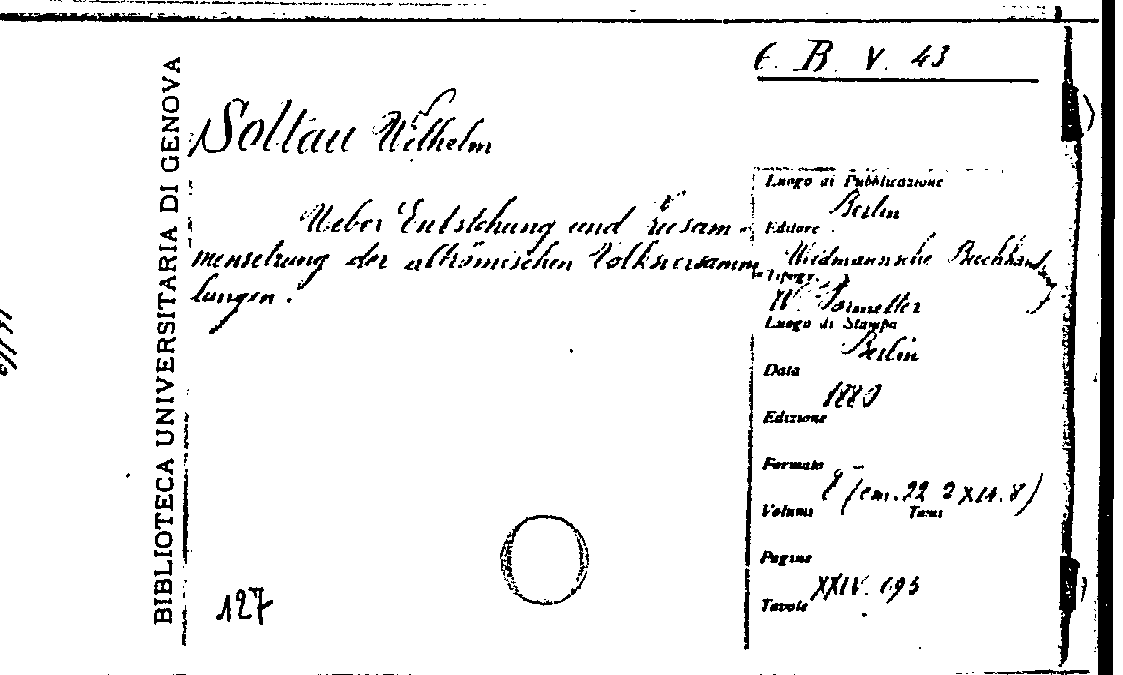 BIBLIOTECA UNIVERSITARIA DI GENOVA
E. B. V. 43
Soltau Wilhelm
Ueber Entstehung und Zusam-
mensetzung der altrömischen Volksversamm
lungen.
127
Luogo di Pubblicazione
Berlin
Editore
Weidmannsche Buchhandlung
Tipogr.
W.
Luogo di Stampa
Berlin
Data
1880
Edizione
Formato
8° (cm. 22 2 X 14.8)
Volumi Tomi
Pagine
XXIV. 693
Tavole